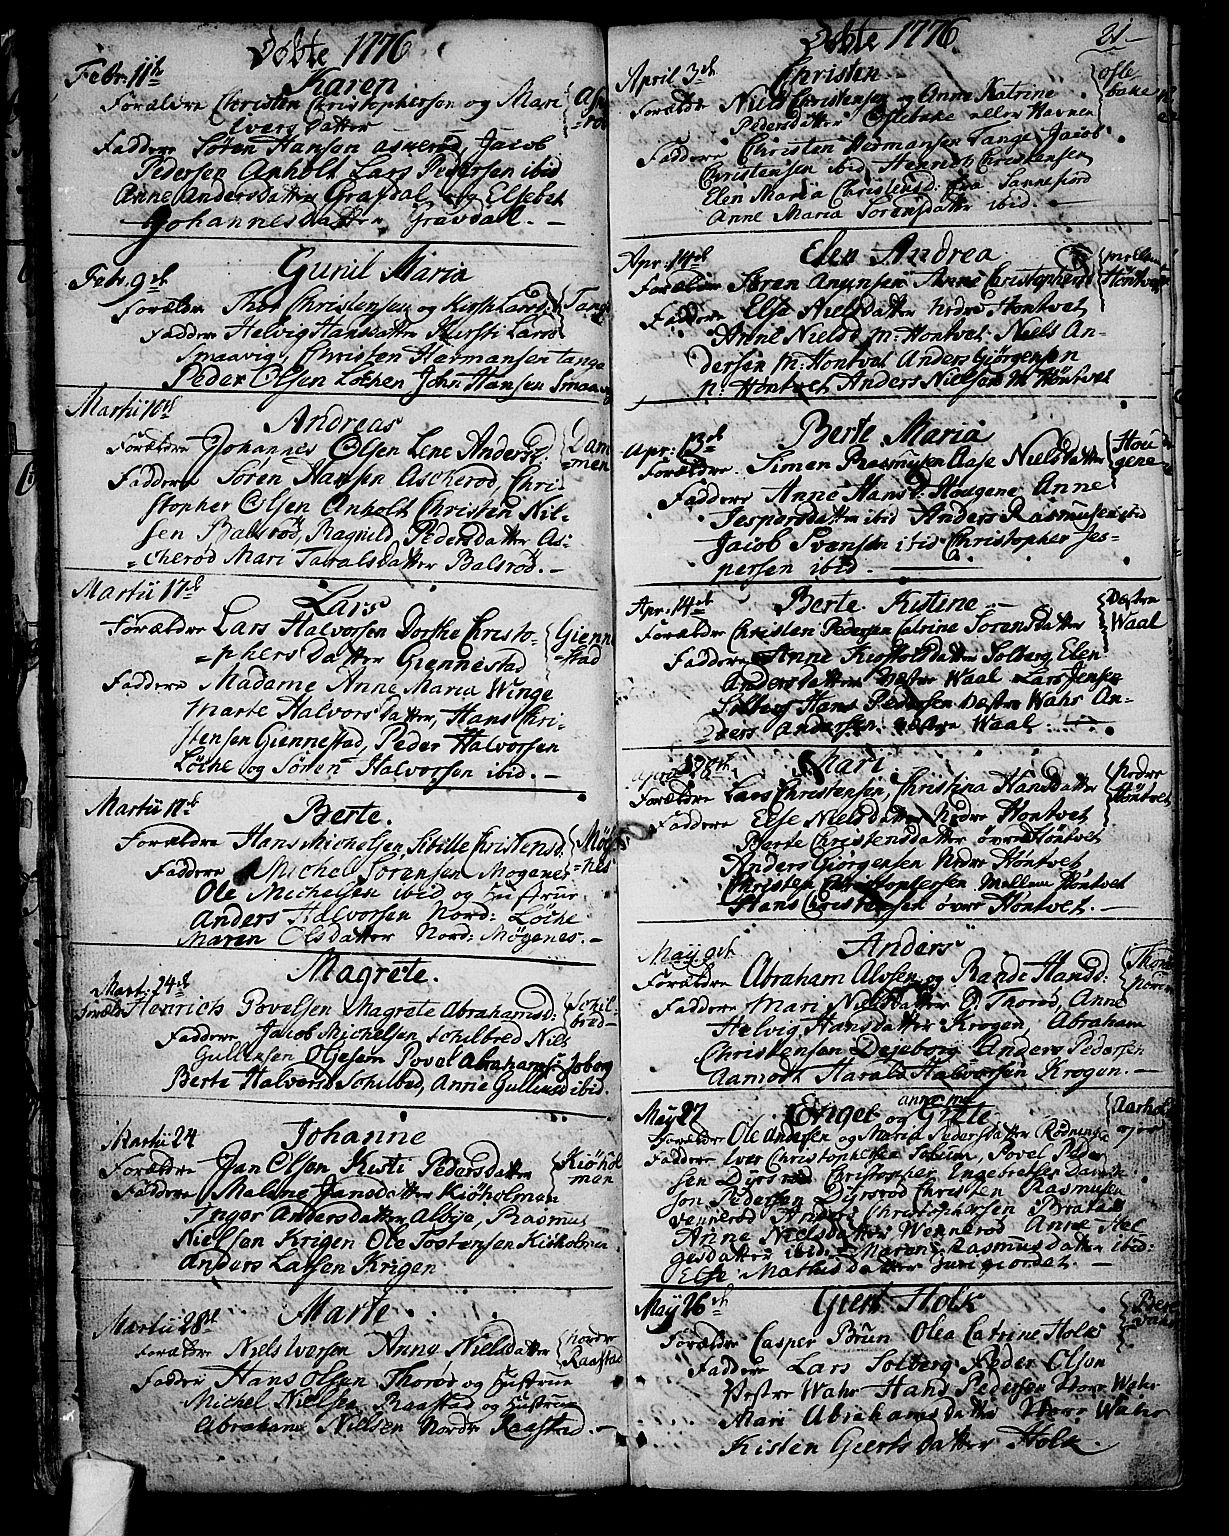 Døbte 1776
Febr: 11th
Karen
Forældre Christen Christophersen og Mari
Ivers datter
Faddere Søren Hansen Askerød, Jacob
Pedersen Anholt Lars Pedersen ibid
Anne Andersdatter Grafdal og Elsebet
Johannesdatter Gravdal.
Febr. 9de
Gunil Maria
Forældre Thor Christensen og Kirsti Larsd: Tange
Faddere Helvig Hansdatter Kirsti Larsd
Smaavig, Christen Harmansen tange
Peder Olsen Løchen John Hansen Smaavig
Martii 10de
Andreas
Forældre Johannes Olsen Lene Andersd. Dam
=men
Faddere Søren Hansen Ascherød, Chri-
stopher Olsen Anholt Christen Nil-
sen Balsrød, Ragnild Pedersdatter As-
=cherød Mari Taralsdatter Balsrød. -
Martii 17de
Lars
Forældre Lars Halvorsen Dorthe Christo- Gienne
=phers datter Giennestad stad
Faddere Madame Anne Maria Winge
Marte Halvors datter, Hans Chri-
stensen Giennestad, Peder Halvorsen
Løche og Søren Halvorsen ibid. -
Martii 17de
Berte.
Forældre Hans Michelsen, Sibille Christensd. Møge
=nes
Faddere Michel Sørensen Mogenes
Ole Michelsen ibid og Hustrue
Anders Halvorsen Nord: Løche
Maren Olsdatter Nord: Møgenes. -
Mart: 24de
Magrete.
Forældre Henrich Povelsen Magrete Abrahamsd: Schil-
bred-
Faddere Jacob Michelsen Schilbred Niels
Gullicksen Olsesen Povel Abrahams: Soborg
Berte Halvorsd Schilbed, Anne Gullicksd ibid.
Martii 24
Johanne
Forældre Jan Olsen Kirsti Pedersdatter Kiøhol
men
Faddere Malene Jansdatter Kiøholmen
Inger Andersdatter Albye, Rasmus
Nielsen Krigen Ole Tostensen Kiøholmen
Anders Larsen Krigen
Martii 28de
Marte
Forældre Niels Iversen Anne Nielsdatter Nordre
Raastad
Faddere Hans Olsen Thorød og Hustrue
Michel Nielsen Raastad og Hustrue
Abraham Nielsen Nordr Raastad. -
Døbte 1776 21
April 3de
Christen
Forældre Niels Christensen og Anne Katrine Ofle
bake
Pedersdatter Oflebake eller Havnen
Faddere Christen Hermansen Tange Jacob
Christensen ibid Henrich Christensen
Elen Maria Christensd. fra Sannefiord
Anne Maria Sørensdatter ibid. -
Apr: 14de
Elen Andrea
Forældre Søren Anunsen Anne Christophersd Mellem
Høntvet
Faddere Else Nielsdatter nedre Hontvet
Anne Nielsd M: Hontvet Niels An-
dersen M: Hontvet Anders Giørgensen
N: Hontvet Anders Nielsen M Høntvet
Apr: 13de
Berte Maria
Forældre Simen Rasmusen Aase Nielsdatter Hou
gene
Faddere Anne Hansd: Hougene Anne
Jespersdatter ibid Anders Rasmusen ibid
Jacob Svansen ibid Christopher Jes-
persen ibid.
Apr: 14de
Berte Kistine -
Forældre Christen Pedersen Catrine Sorensdatter Væstre
Waal
Faddere Anne Solberg Elen
Andersdatter Vestre Waal Lars Jensen
Solberg Hans Pedersen Vestre Wahr An-
ders Andersen vestre Waal.
April 28de
Mari
Forældre Lars Christensen, Christina Hansdatter Nedre
Høntvet
Faddere Else Nielsdatter Nedre Hontvet
Berte Christensdatter øvre Høntvet
Anders Giørgensen Nedre Høntvet
Christen Christophersen Mellem Høntvet
Hans Christensen øvre Hontvet. -
May
Anders
Forældre Abraham Alvsen og Rande Hansd: Thore
Faddere Mari Nielsdatter Thorød, Anne
Helvig Hansdatter Krogen, Abraham
Christensen Dejeborg Anders Pedersen
Aamodt Harald Halvorsen Krogen. -
May 27
Engel og Grete
Forældre Ole Andersen og Maria Pedersdatter Rødningse Aarhol
Faddere Iver Christophersen Solum, Povel Peder-
sen Dyrsrød Christopher Engebretsen
Pedersen Dyrsrød Christen Rasmusen
Vennerød Anders Christophersen Brataas
Anne Nielsdatter Wennerød Anne Hel
gesdatter ibid: Maren Rasmusdatter ibid:
Else Mathis datter
May 26de
Giert Holk
Forældre Casper Brun Olea Catrine Holk
Faddere Lars Solberg Peder Olsøn
Vestre Wahr Hans Pedersen Store Wahr
Mari Abrahamsdatter Store Wahr
Kisten Gierts datter Holk.